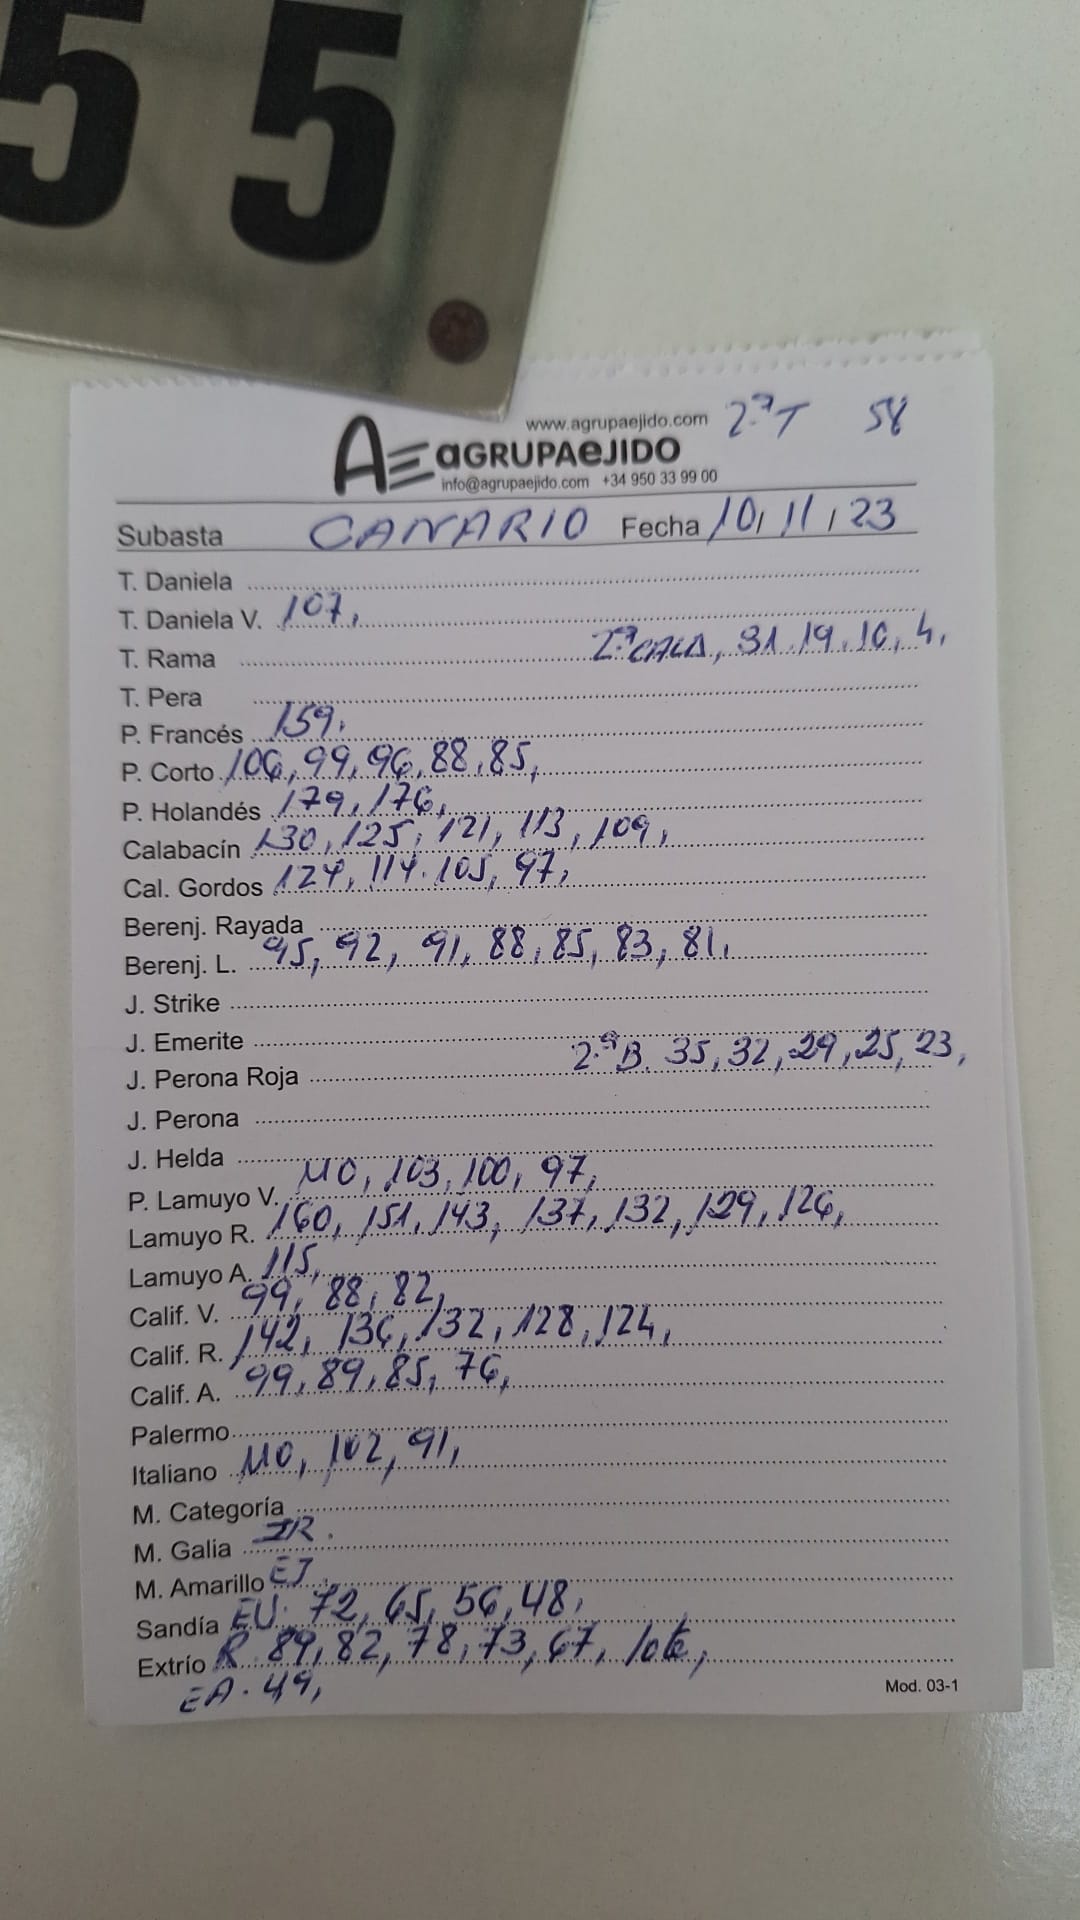 55
www.agrupaejido.com 2ªT 58
AE aGRUPAeJIDO
info@agrupaejido.com +34 950 33 99 00
Subasta CANARIO Fecha 10/11/23
T. Daniela
T. Daniela V. 107,
T. Rama 2ª CALA, 31.19.10, 4,
T. Pera
P. Francés 159.
P. Corto 106, 99, 96, 88, 85,
P. Holandés 179, 176,
Calabacín 130, 125, 121, 113, 109,
Cal. Gordos 124, 114. 105, 97,
Berenj. Rayada
Berenj. L. 95, 92, 91, 88, 85, 83, 81,
J. Strike
J. Emerite
J. Perona Roja 2ªB. 35, 32, 29, 25, 23,
J. Perona
J. Helda
P. Lamuyo V. 110, 103, 100, 97,
Lamuyo R. 160, 151, 143, 137, 132, 129, 126,
Lamuyo A. 115,
Calif. V. 99, 88, 82,
Calif. R. 142, 136, 132, 128, 124,
Calif. A. 99, 89, 85, 76,
Palermo
Italiano 110, 102, 91,
M. Categoría
M. Galia IR.
M. Amarillo EJ
Sandía EU. 72, 65, 56, 48,
Extrío R. 89, 82, 78, 73, 67,
EA. 49,
Mod. 03-1